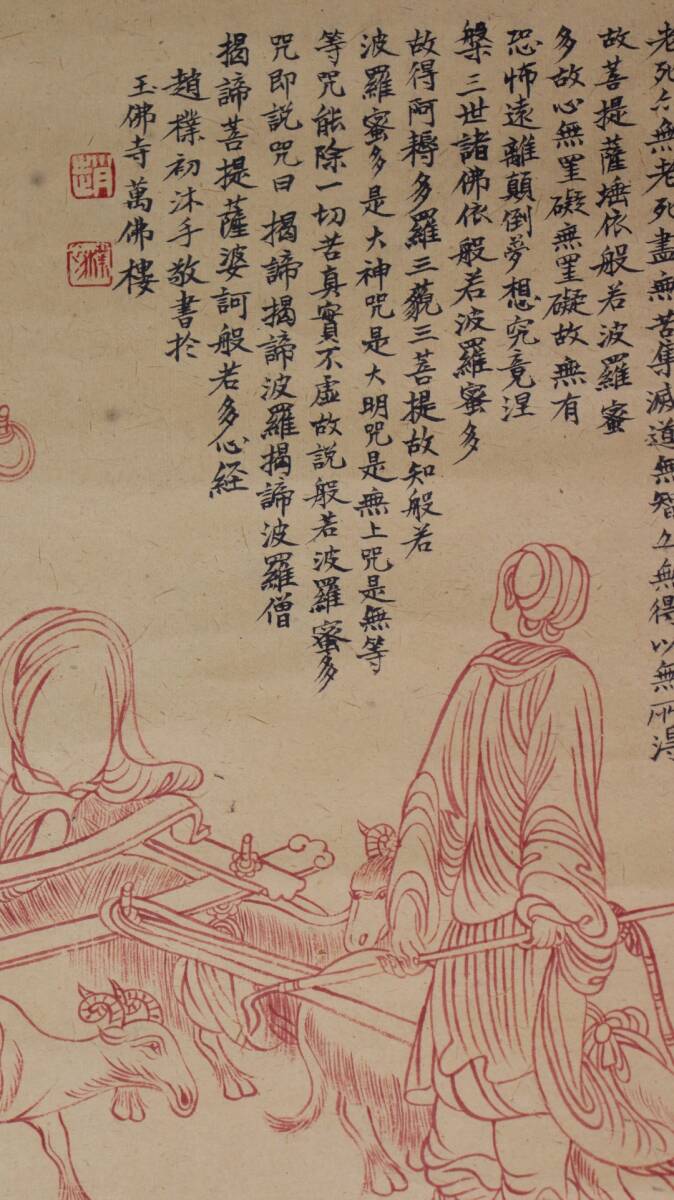 老死亦無老死盡無苦集滅道無智亦無得以無所得
故菩提薩埵依般若波羅蜜
多故心無罣礙無罣礙故無有
恐怖遠離顛倒夢想究竟涅
槃三世諸佛依般若波羅蜜多
故得阿耨多羅三藐三菩提故知般若
波羅蜜多是大神咒是大明咒是無上咒是無等
等咒能除一切苦真實不虛故説般若波羅蜜多
咒即説咒曰 揭諦揭諦波羅揭諦波羅僧
揭諦菩提薩婆訶般若多心経
趙樸初沐手敬書於
玉佛寺萬佛樓
趙
樸初